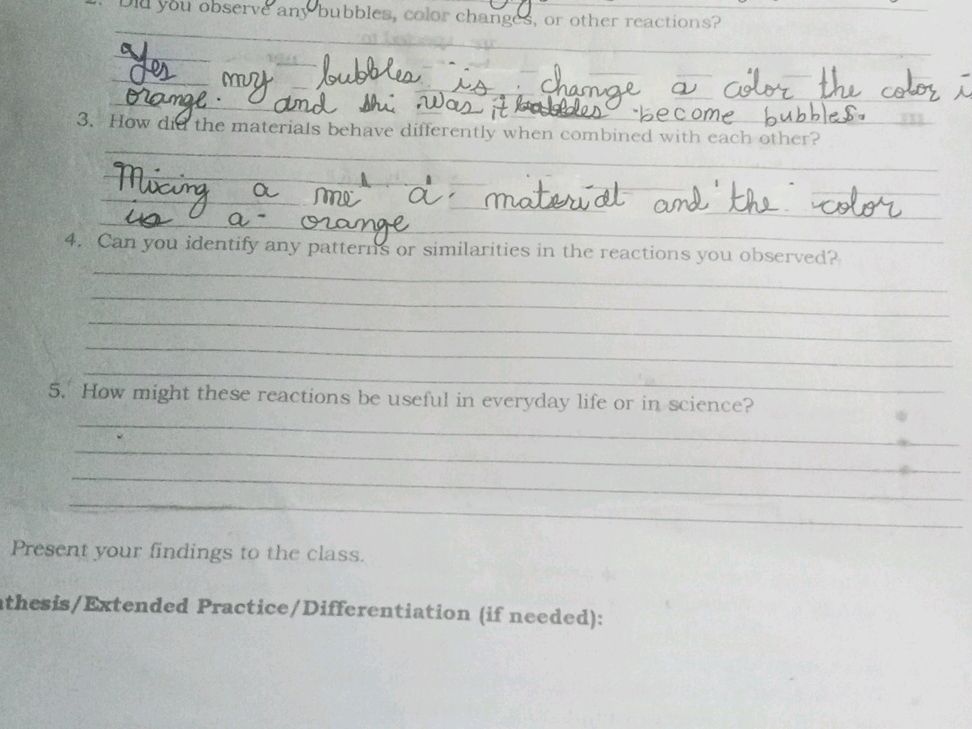 2. Did you observe any bubbles, color changes, or other reactions?
Yes my bubbles is change a color the color
orange. and thi was it become bubbles.
3. How did the materials behave differently when combined with each other?
Mixing a me a materi and the color
is a orange
4. Can you identify any patterns or similarities in the reactions you observed?
5. How might these reactions be useful in everyday life or in science?
Present your findings to the class.
nthesis/Extended Practice/Differentiation (if needed):